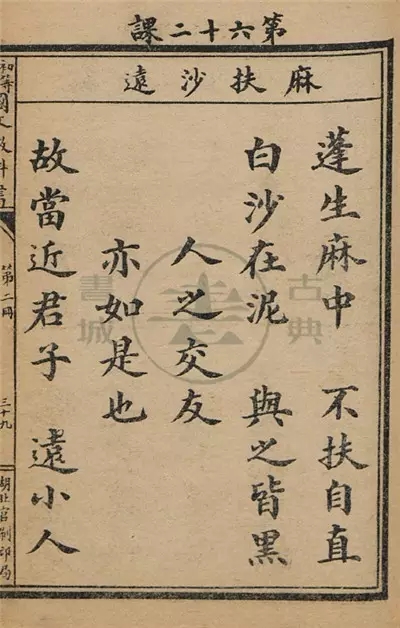 第六十二課
麻扶沙遠
蓬生麻中　不扶自直
白沙在泥　與之皆黑
人之交友
亦如是也
故當近君子　遠小人
初等國文教科書
第二冊
三十九
湖北官刷印局
古典書城